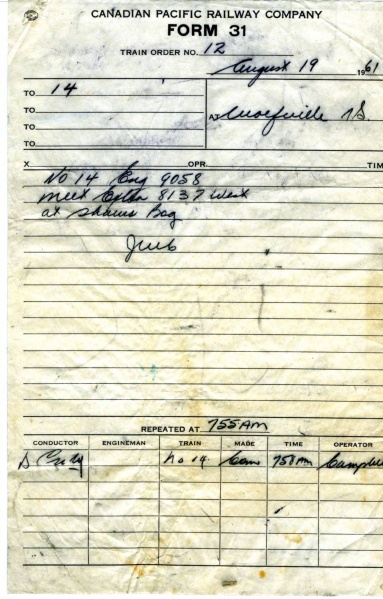 CANADIAN PACIFIC RAILWAY COMPANY
FORM 31
TRAIN ORDER NO. 12
August 19 1961
TO 14
TO
AT Wolfville NS.
TO
TO
X OPR. TIM
No 14 Eng 9058
meet Extra 8137 West
at Shaws Bog
REPEATED AT 755AM
CONDUCTOR ENGINEMAN TRAIN MADE TIME OPERATOR
No 14 Com 758AM Campbell